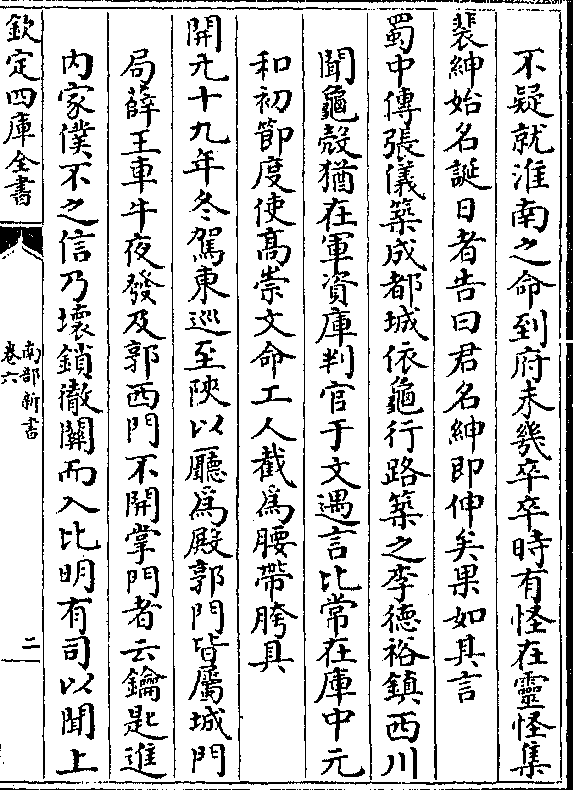 不疑就淮南之命到府未幾卒卒時有怪在靈怪集
裴紳始名誕日者告曰君名紳即伸矣果如其言
蜀中傳張儀築成都城依龜行路築之李德裕鎮西川
聞龜殼猶在軍資庫判官于文遇言比常在庫中元
和初節度使髙崇文命工人截爲腰帶胯具
開元十九年冬駕東巡至陜以廳爲殿郭門皆屬城門
局薛王車牛夜發及郭西門不開掌門者云鑰匙進
内家僕不之信乃壊鎖徹闗而入比明有司以聞上
欽定四庫全書
南部新書
卷六
二